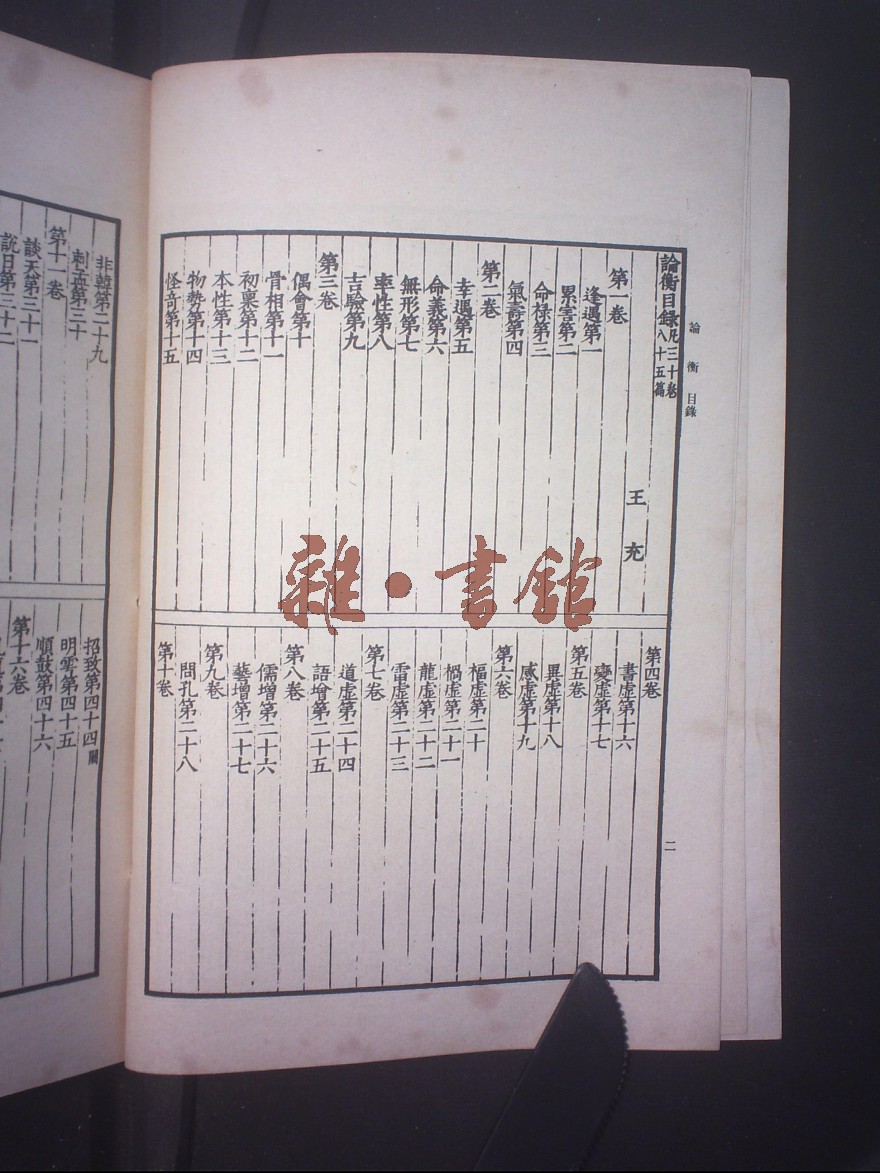 論衡目錄凡三十卷八十五篇
王充
第一卷
逢遇第一
累害第二
命祿第三
氣壽第四
第二卷
幸遇第五
命義第六
無形第七
率性第八
吉驗第九
第三卷
偶會第十
骨相第十一
初稟第十二
本性第十三
物勢第十四
怪奇第十五
第四卷
書虛第十六
變虛第十七
第五卷
異虛第十八
感虛第十九
第六卷
福虛第二十
禍虛第二十一
龍虛第二十二
雷虛第二十三
第七卷
道虛第二十四
語增第二十五
第八卷
儒增第二十六
藝增第二十七
第九卷
問孔第二十八
第十卷
論衡 目錄
二
非韓第二十九
刺孟第三十
第十一卷
談天第三十一
說日第三十二
招致第四十四闕
明雩第四十五
順鼓第四十六
第十六卷
雜·書館